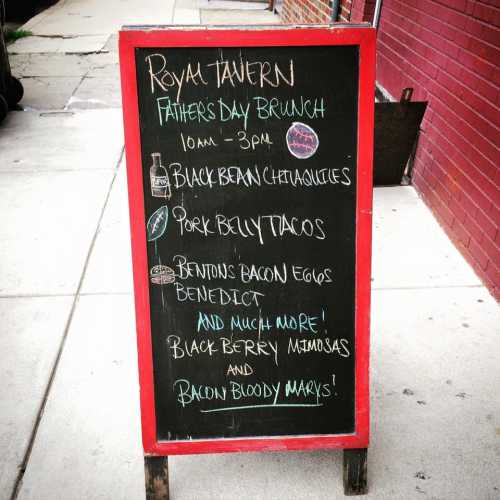 ROYAL TAVERN
FATHERS DAY BRUNCH
10AM - 3PM
BLACK BEAN CHILAQUILES
PORK BELLY TACOS
BENTONS BACON EGGS
BENEDICT
AND MUCH MORE!
BLACK BERRY MIMOSAS
AND
BACON BLOODY MARYS!